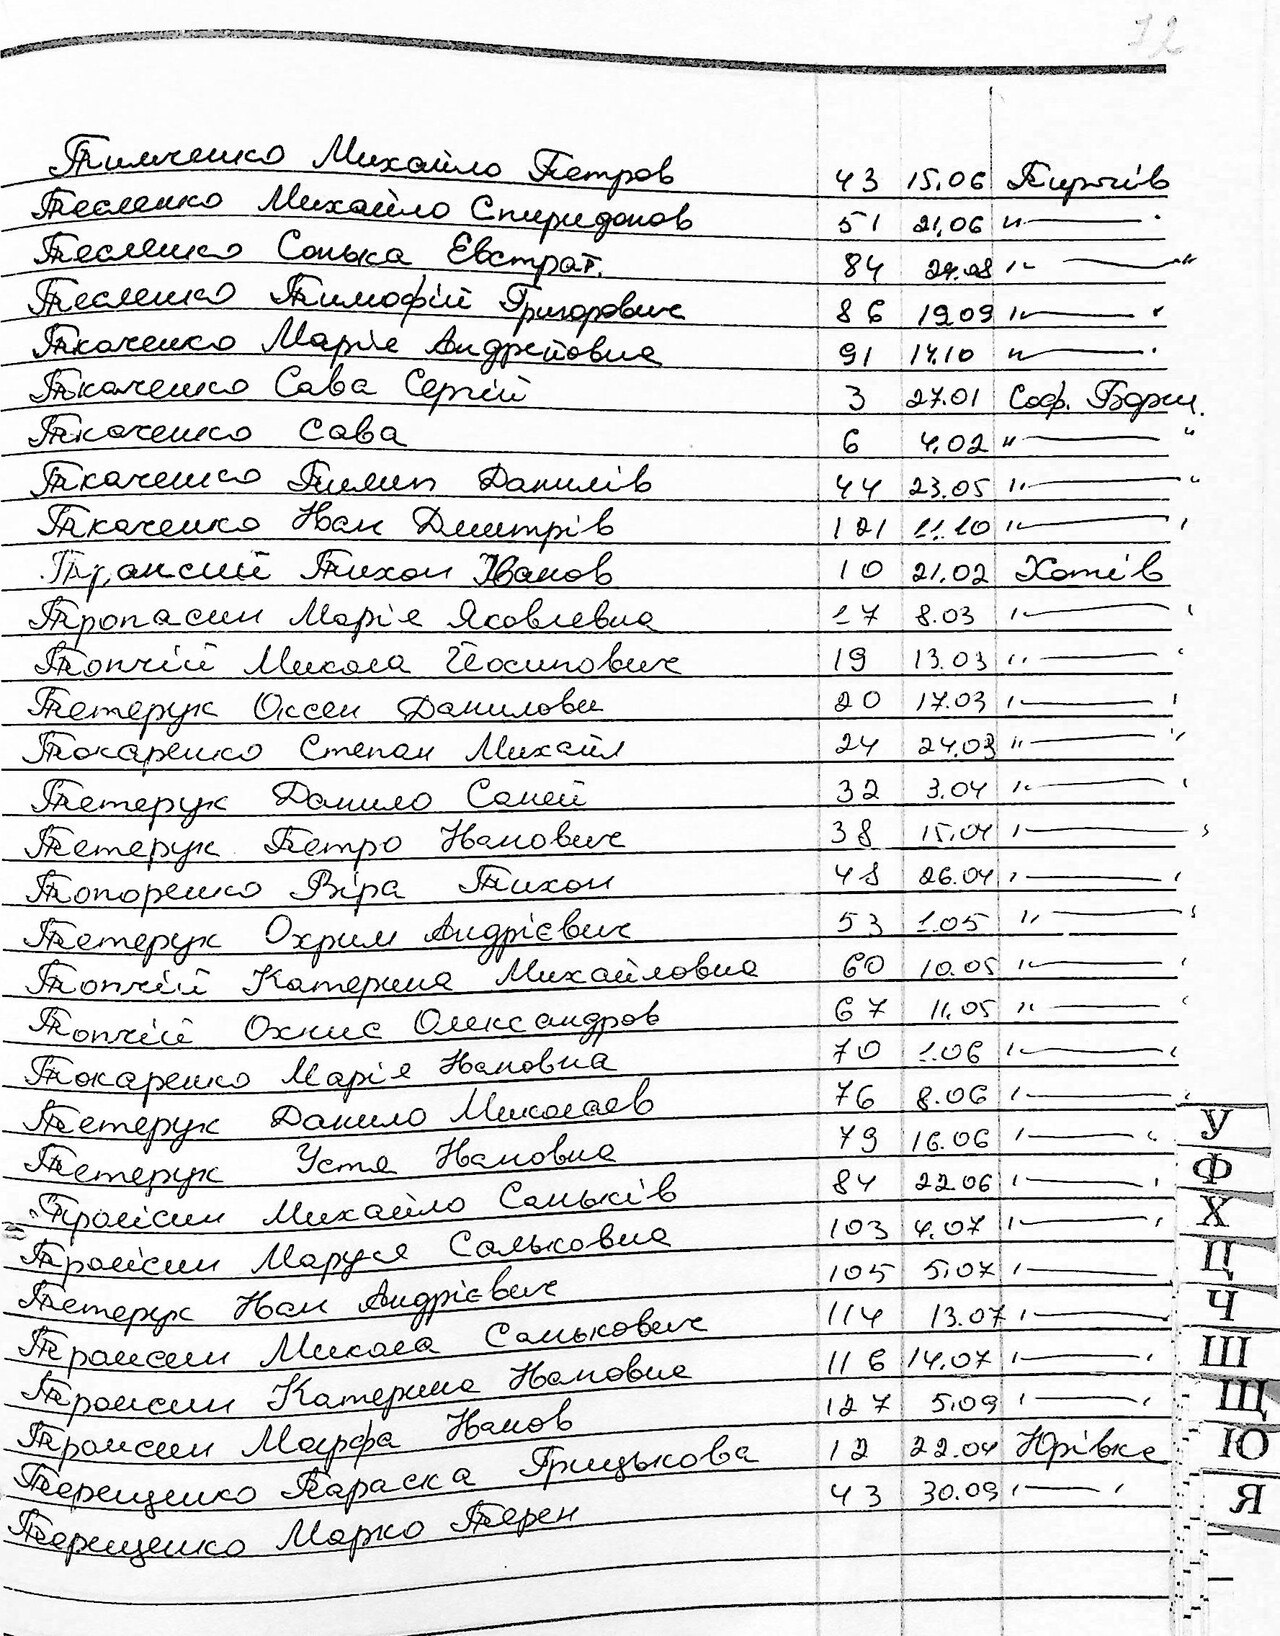 12
Тимченко Михайло Петров 43 15.06 Гирчів
Тесленко Михайло Спиридонов 51 21.06 "—"
Тесленко Сонька Евстрат. 84 29.08 "—"
Тесленко Тимофій Григорович 86 19.09 "—"
Ткаченко Марія Андрейовна 91 14.10 "—"
Ткаченко Сава Сергій 3 27.01 Соф. Борщ.
Ткаченко Сава 6 4.02 "—"
Ткаченко Пилип Данилів 44 23.05 "—"
Ткаченко Іван Дмитрів 121 11.10 "—"
Тихон Іванов 10 21.02 Хотів
Марія Яковлевна 17 8.03 "—"
Топчій Микола Йосипович 19 13.03 "—"
Тетерук Оксен Данилови 20 17.03 "—"
Токаренко Степан Михайл 24 24.03 "—"
Тетерук Данило Саней 32 3.04 "—"
Тетерук Петро Іванович 38 15.04 "—"
Топоренко Віра Тихон 48 26.04 "—"
Тетерук Охрим Андрієвич 53 1.05 "—"
Топчій Катерина Михайловна 60 10.05 "—"
Топчій Охнис Олександров 67 11.05 "—"
Токаренко Марія Івановна 70 1.06 "—"
Тетерук Данило Миколаев 76 8.06 "—"
Тетерук Устя Івановна 79 16.06 "—"
Троисин Михайло Саньків 84 22.06 "—"
Троисин Маруся Саньковна 103 4.07 "—"
Тетерук Іван Андрієвич 105 5.07 "—"
Троисин Микола Санькович 114 13.07 "—"
Троисин Катерина Івановна 116 14.07 "—"
Троисин Марфа Іванов 127 5.09 "—"
Терещенко Параска Грицькова 12 22.04 Юрівка
Терещенко Марко Терен 43 30.09 "—"
У
Ф
Х
Ц
Ч
Ш
Щ
Ю
Я